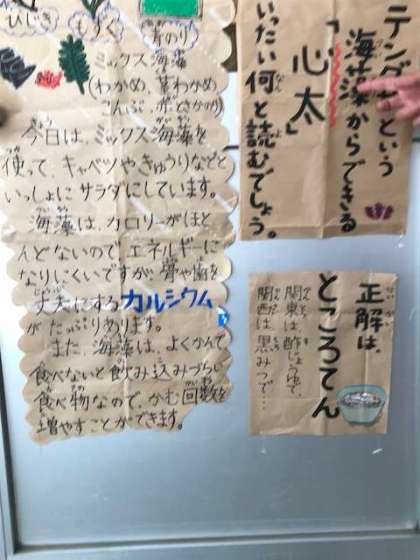 ひじき
もずく
青のり
ミックス海藻
(わかめ、茎わかめ
こんぶ、赤とさかのり)
今日は、ミックス海藻を
使って、キャベツやきゅうりなどと
いっしょにサラダにしています。
海藻は、カロリーがほと
んどないので、エネルギーに
なりにくいですが骨や歯を
丈夫にするカルシウム
がたっぷりあります。
また、海藻は、よくかんで
食べないと飲み込みづらい
食べ物なので、かむ回数を
増やすことができます。
テングサという
海藻からできる
「心太」
いったい何と読むでしょう。
正解は、
ところてん
関東は、酢じょうゆで、
関西は、黒みつで…